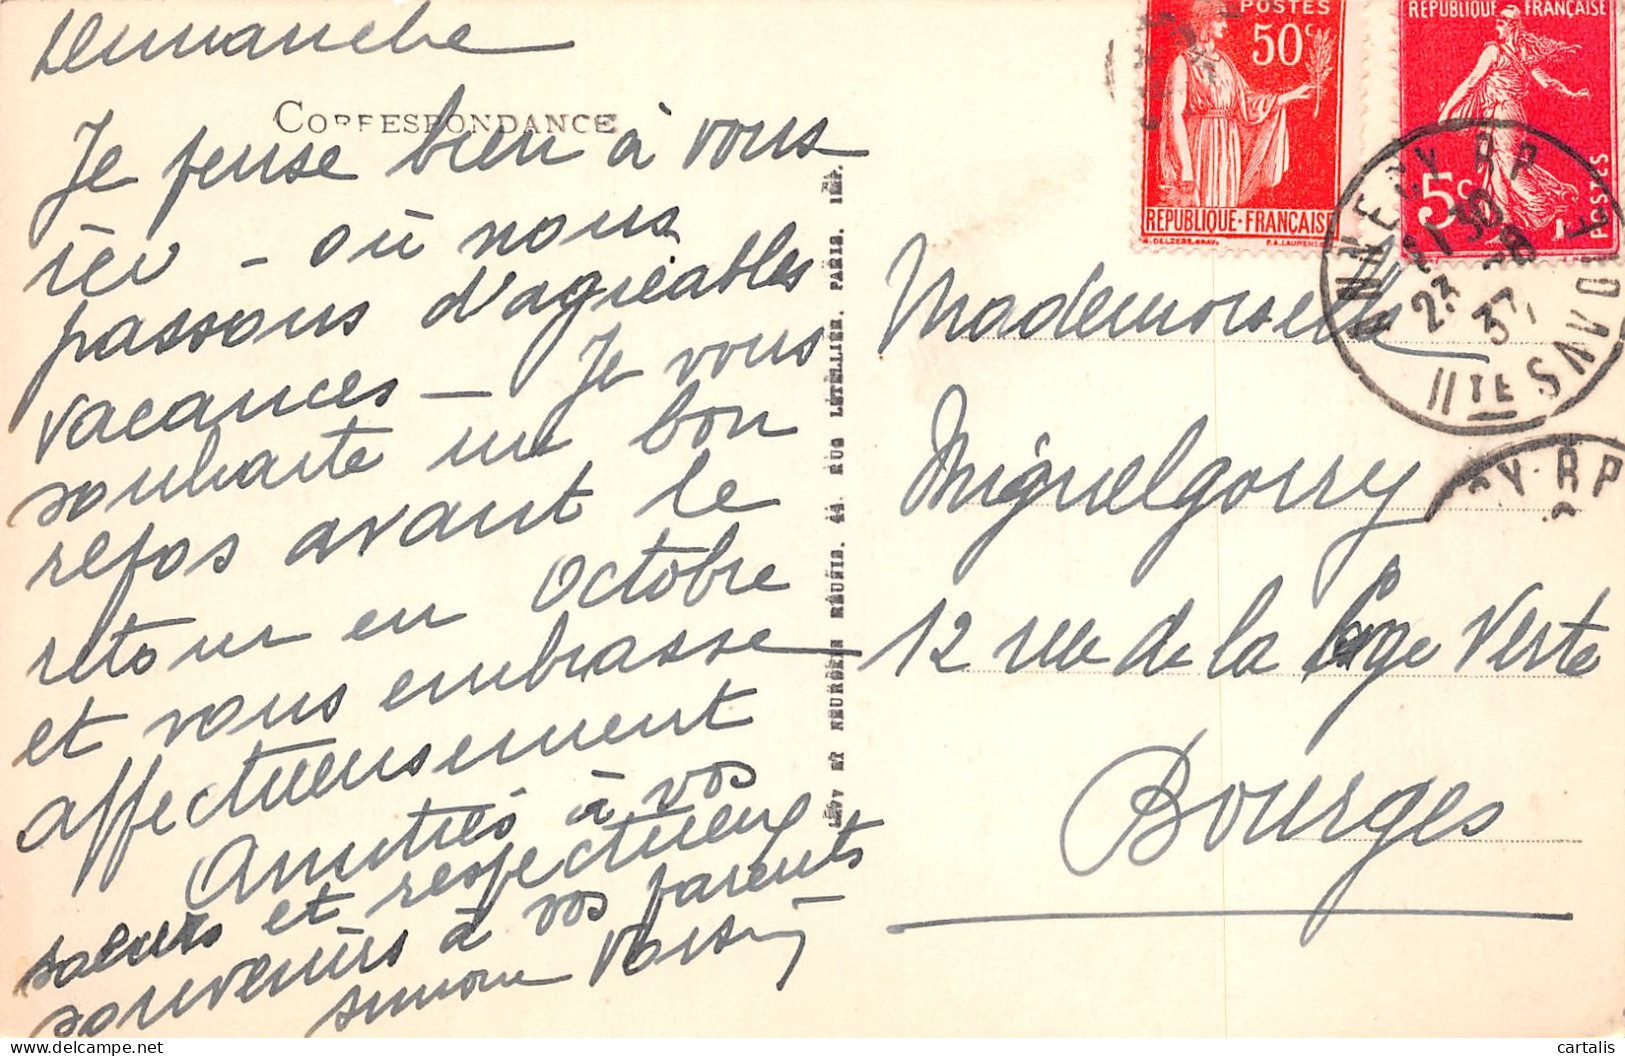 Dimanche
CORRESPONDANCE
Je pense bien à vous
ici - où nous
passons d'agréables
vacances - Je vous
souhaite un bon
repos avant le
retour en octobre
et vous embrasse
affectueusement
Amitiés à vos
sœurs et respectueux
souvenirs à vos parents
Simone
LÉVY ET NEURDEIN RÉUNIS. 44. RUE LETELLIER. PARIS. IMP.
POSTES
50c
REPUBLIQUE-FRANÇAISE
REPUBLIQUE FRANÇAISE
5c
POSTES
ANNECY RP
21 30
23
37
HTE SAVOIE
CY RP
Mademoiselle
Miguelgorry
12 rue de la Loge Verte
Bourges
cartalis